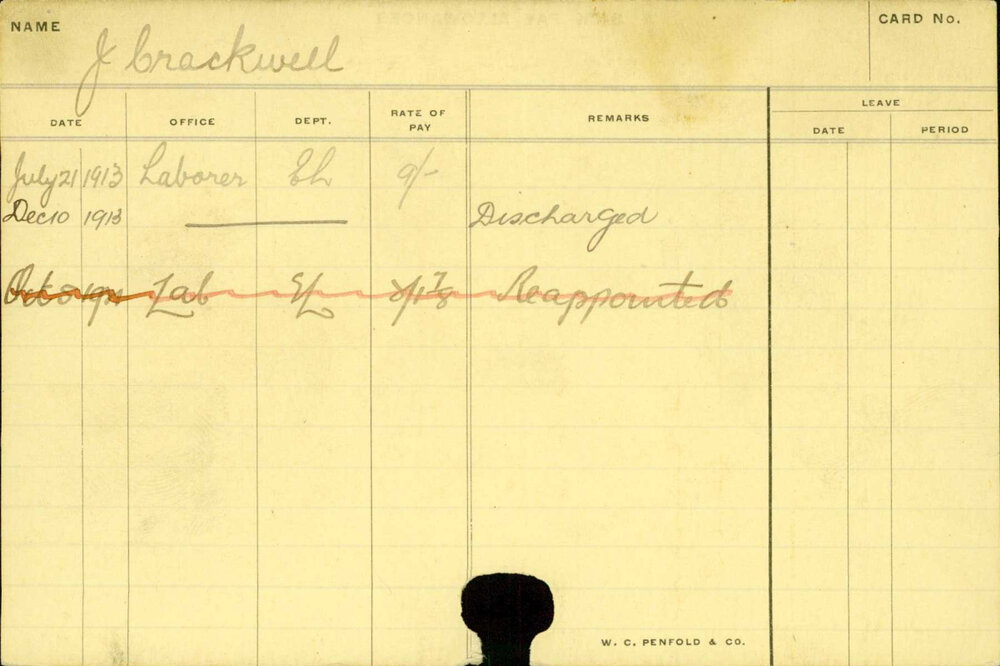 NAME J Crackwell CARD No.
DATE OFFICE DEPT. RATE OF PAY REMARKS LEAVE
DATE PERIOD
July 21 1913 Laborer EL 9/-
Dec 10 1913 Discharged
Lab EL Reappointed
W. C. PENFOLD & CO.